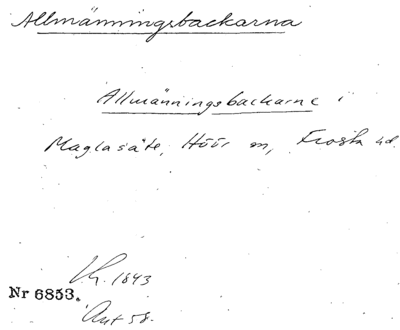 Allmänningsbackarna
Allmänningsbackarne i
Maglasäte, Höör sn, Frosta hd.
1843
Nr 6853.
Ant 58.